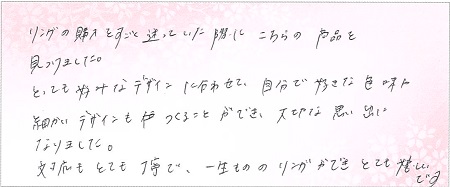 リングの購入をずっと迷っていた際に こちらの 商品を
見つけました。
とっても好みなデザインに合わせて、自分で好きな色味や
細かいデザインも 作つくることができ、大切な思い出に
なりました。
対応もとても丁寧で、一生もののリングができとても嬉しい
です